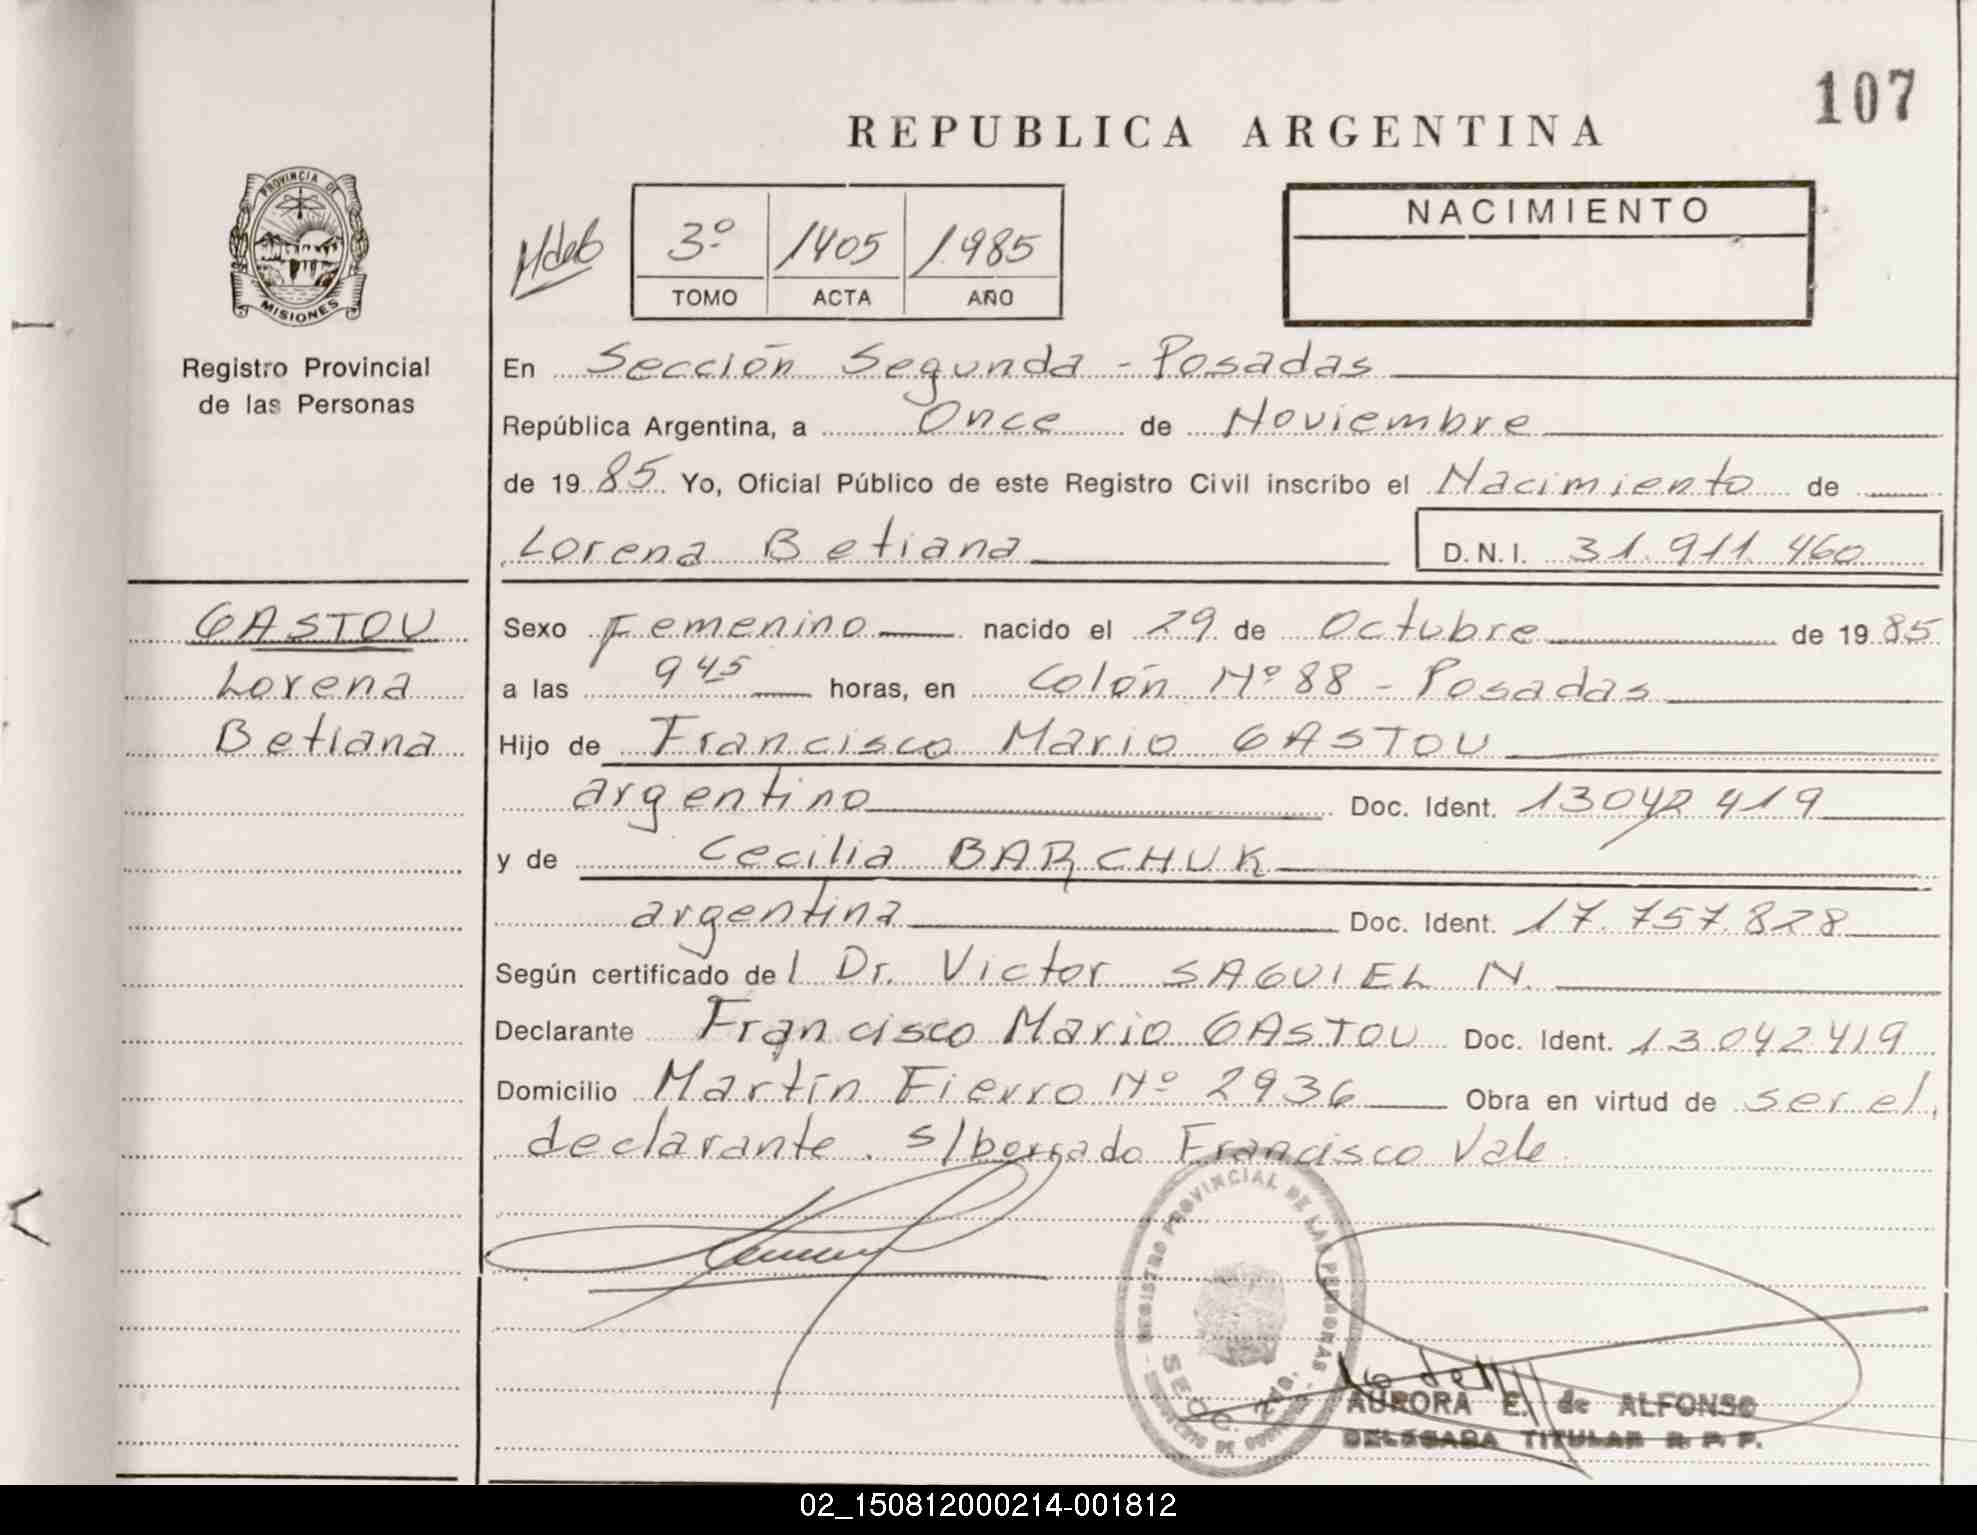 107
REPUBLICA ARGENTINA
PROVINCIA DE
MISIONES
Registro Provincial
de las Personas
3º 1405 1985
TOMO ACTA AÑO
NACIMIENTO
En Sección Segunda - Posadas
República Argentina, a Once de Noviembre
de 19 85 Yo, Oficial Público de este Registro Civil inscribo el Nacimiento de
Lorena Betiana D.N.I. 31.911.460
GASTOU
Lorena
Betiana
Sexo Femenino nacido el 29 de Octubre de 19 85
a las 9 45 horas, en Colón Nº 88 - Posadas
Hijo de Francisco Mario GASTOU
argentino Doc. Ident. 13042419
y de Cecilia BARCHUK
argentina Doc. Ident. 17.757.828
Según certificado del Dr. Victor SAGUIEL N.
Declarante Francisco Mario GASTOU Doc. Ident. 13042419
Domicilio Martín Fierro Nº 2936 Obra en virtud de ser el
declarante. s/borrado Francisco Vale
REGISTRO PROVINCIAL DE LAS PERSONAS
SECC. 2da.
AURORA E. de ALFONSO
DELEGADA TITULAR R. P. P.
02_150812000214-001812